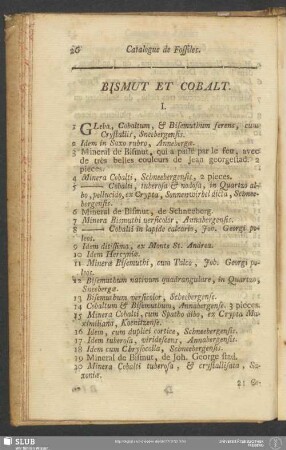 26 Catalogue de Fossiles.
BISMUT ET COBALT.
I.
1 GLeba, Cobaltum, & Bisemuthum ferens, cum
Crystallis, Sneebergensis.
2 Idem in Saxo rubro, Annebergæ.
3 Mineral de Bismut, qui a passé par le feu, avec
de très belles couleurs de Jean georgestad. 2
pieces.
4 Minera Cobalti, Schneebergensis, 2 pieces.
5 —— Cobalti, tuberosa & nodosa, in Quartzo al-
bo, pellucido, ex Crypta, Sonnenwirbel dicta, Schnee-
bergensis.
6 Mineral de Bismut, de Schneeberg.
7 Minera Bismuthi versicolor, Annabergensis.
8 —— Cobalti in lapide calcario, Joh. Georgi po-
leos.
9 Idem ditissima, ex Monte St. Andreæ.
10 Idem Hercyniæ.
11 Minera Bisemuthi, cum Talco, Joh. Georgi
poleos.
12 Bisemuthum nativum quadrangulare, in Quartzo,
Sneebergæ.
13 Bisemuthum versicolor, Schecbergense.
14 Cobaltum & Bisemuthum, Annabergense. 3 pieces.
15 Minera Cobalti, cum Spatho albo, ex Crypta Ma-
ximiliani, Koenitzense.
16 Idem, cum duplici cortice, Schneebergensis.
17 Idem tuberosa, viridescens, Annabergensis.
18 Idem cum Chrysocolla, Schneebergensis.
19 Mineral de Bismut, de Joh. George stad.
20 Minera Cobalti tuberosa, & crystallisata, Sa-
xoniæ.
21 &-
SLUB